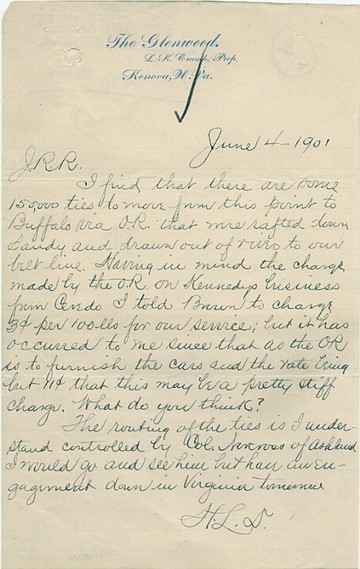 The Glenwood.
L. H. Crump, Prop.
Kenova, W. Va.
June 4-1901
J.R.R.
I find that there are some
150,000 ties to move from this point to
Buffalo via O.R. that were rafted down
Sandy and drawn out of river to our
belt line. Having in mind the charge
made by the O.R. on Kennedys business
from Ceredo I told Bason to charge
3¢ per 100 lbs for our service; but it has
occurred to me since that as the OR
is to furnish the cars and the rate being
but 11¢ that this may be a pretty stiff
charge. What do you think?
The routing of the ties is I under-
stand controlled by Col. of Ashland
I would go and see him but have an en-
gagement down in Virginia tomorrow
H.L.S.